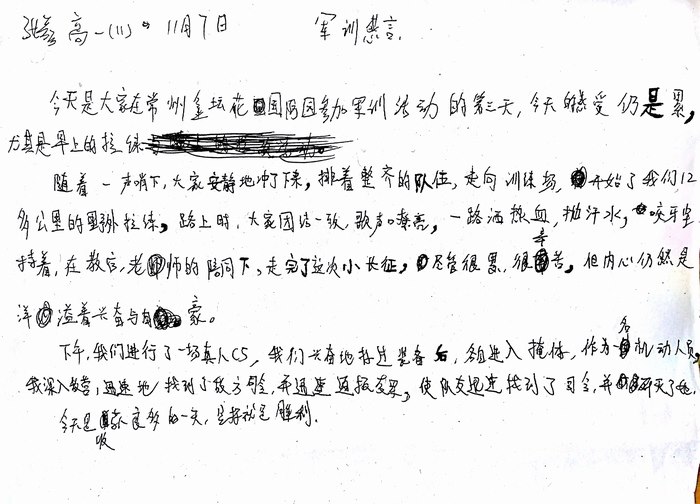 高一(11) 11月7日 军训感言
今天是大家在常州金坛花国防园参加军训活动的第三天,今天的感受仍是累,
尤其是早上的拉练
随着一声哨下,大家安静地冲了下来,排着整齐的队伍,走向训练场,开始了我们12
多公里的野外拉练。路上时,大家团结一致,歌声嘹亮,一路洒热血,抛汗水,咬牙坚
持着,在教官,老师的陪同下,走完了这次小长征,尽管很累,很辛苦,但内心仍然是
洋溢着兴奋与自豪。
下午,我们进行了一场真人CS,我们兴奋地穿过装备后,各自进入掩体,作为一名机动人员,
我深入敌营,迅速地找到了敌方司令,并迅速通报,使队友迅速找到了司令,并歼灭了他。
今天是收获良多的一天,坚持就是胜利.